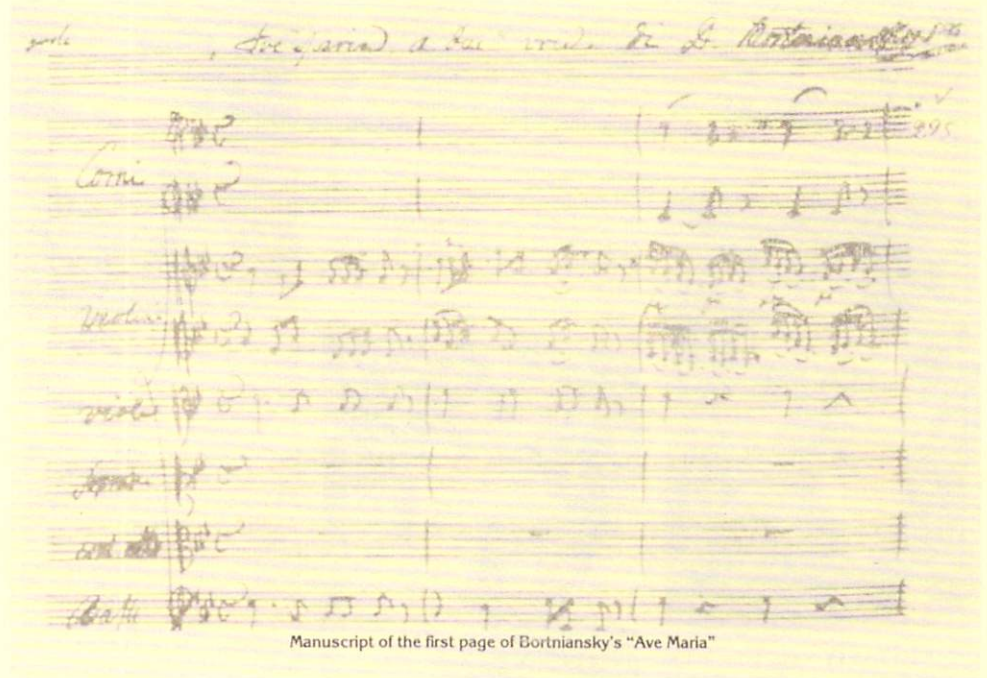 Ave Maria a due voci di D. Bortniansky
Corni
Violini
Viola
Soprano
Basso
Manuscript of the first page of Bortniansky's “Ave Maria”